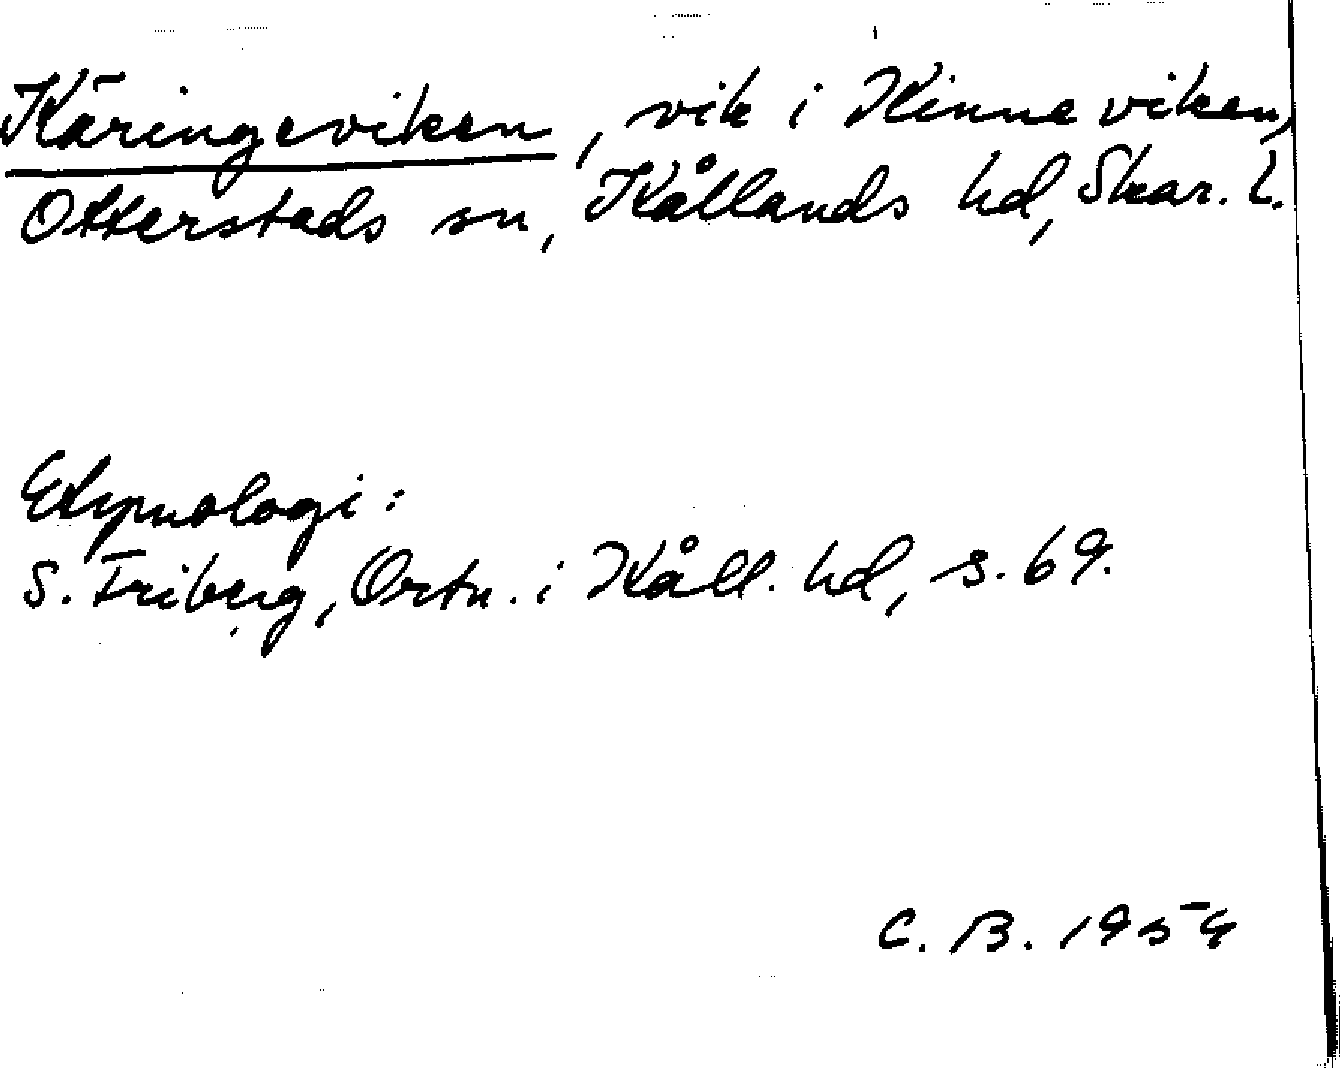 Käringeviken, vik i Kinneviken,
Otterstads sn, Kållands hd, Skar. l.
Etymologi:
S. Friberg, Ortn. i Kåll. hd, s. 69.
C. B. 1954